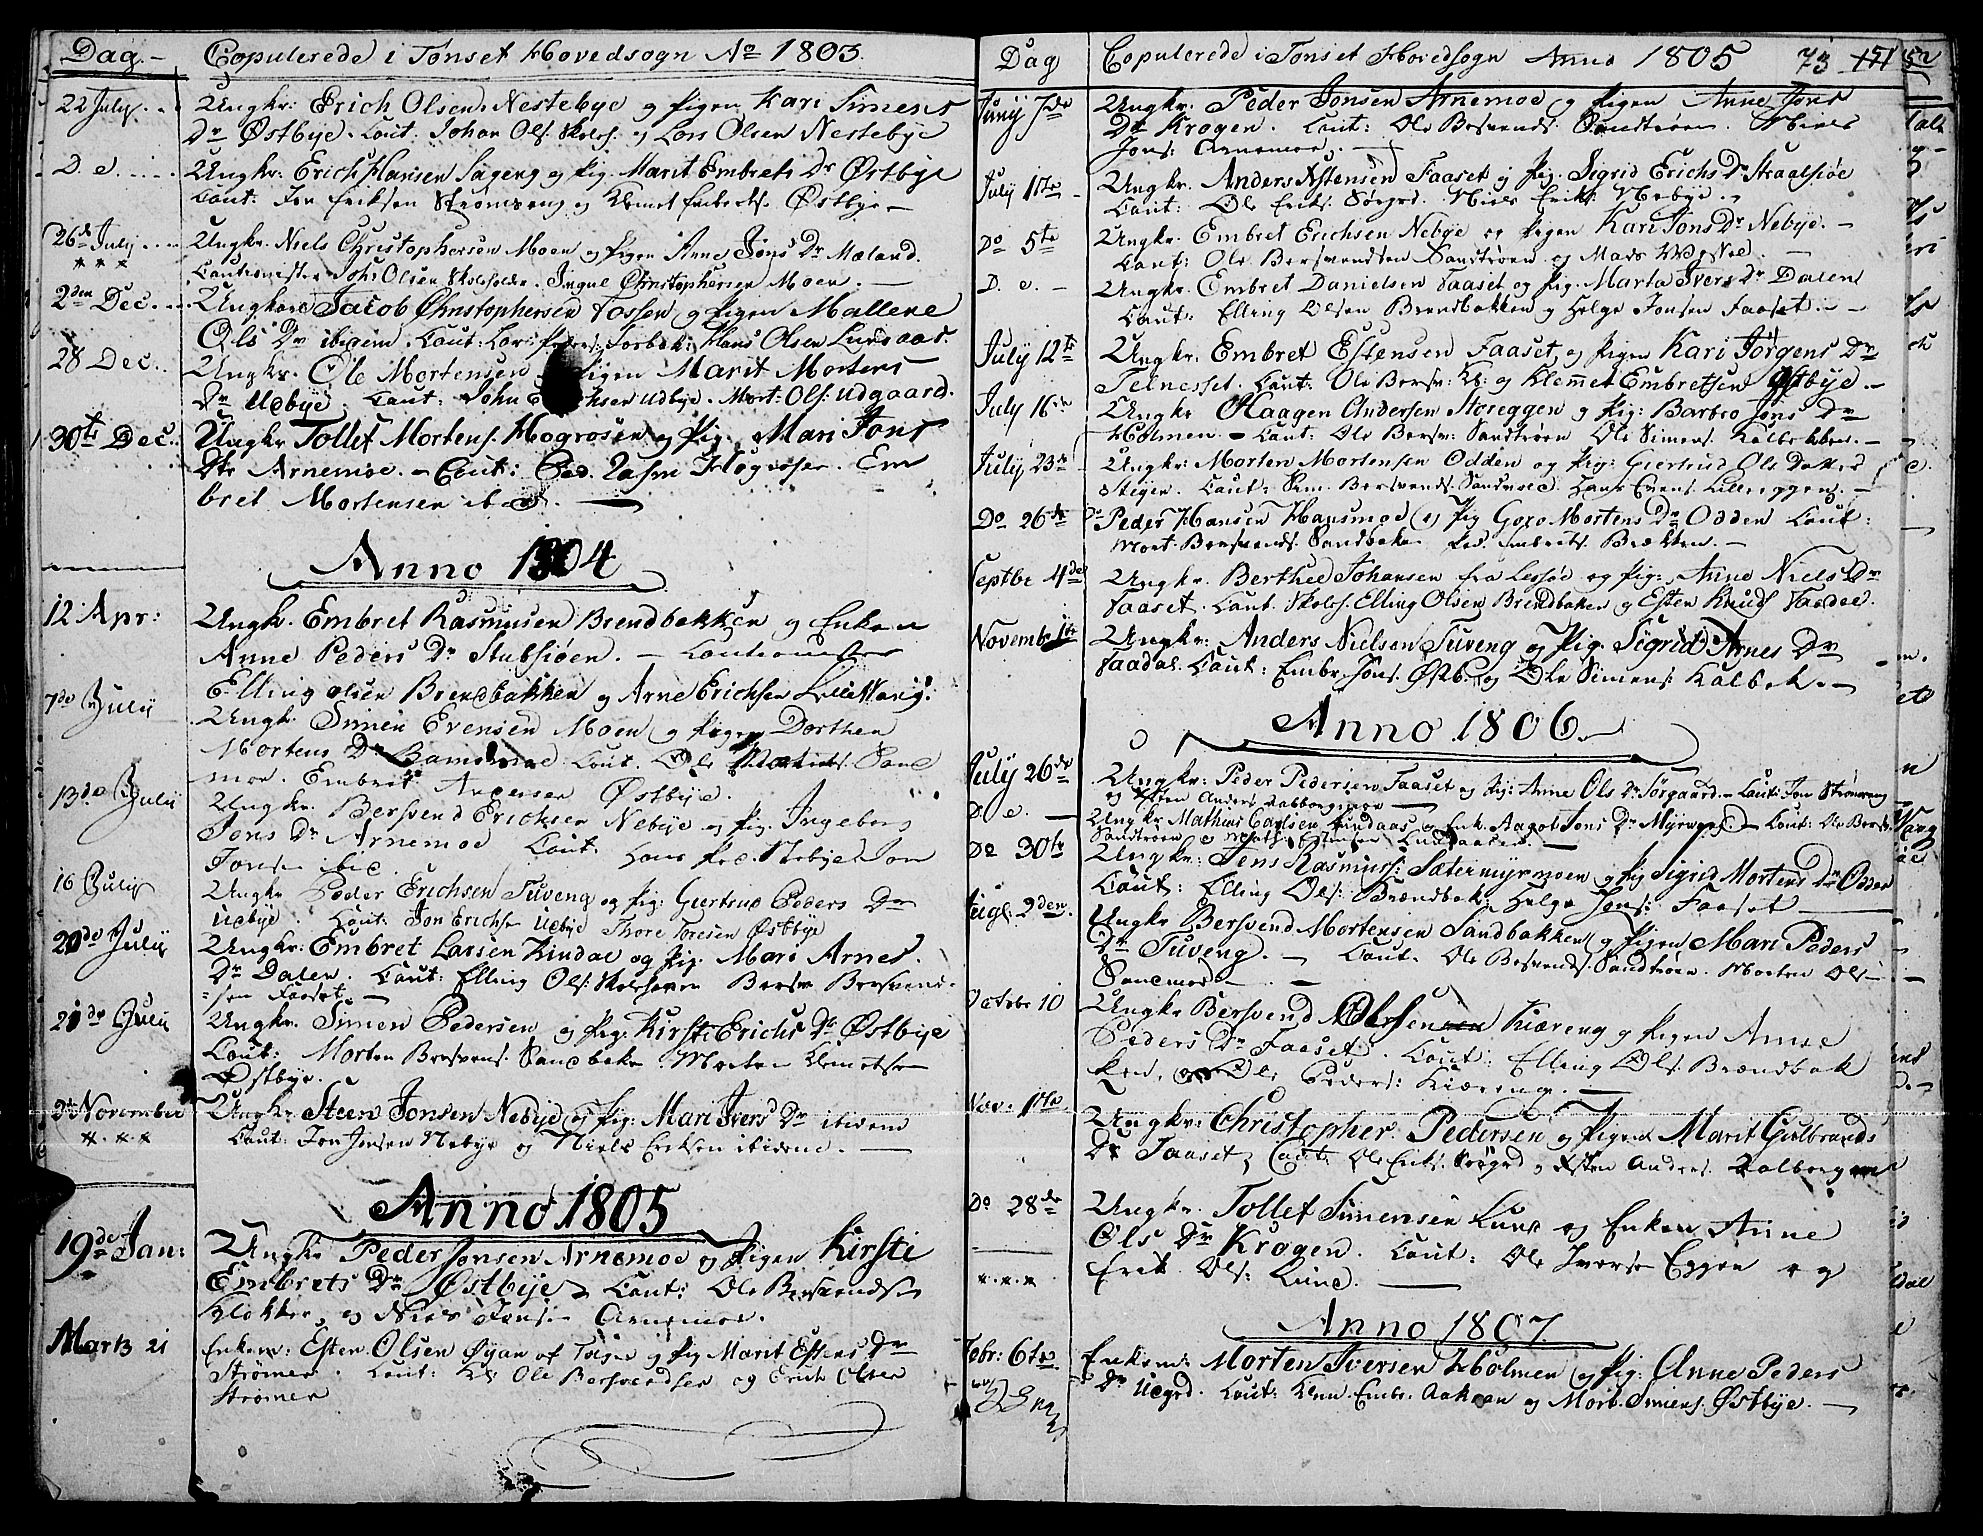 Dag. -
Copulerede i Tønset Hovedsogn Ao 1803.
22 July. Ungkr: Erich Olsen Nestebye og Pigen Kari Simens
Dr Østbye. Caut. Johan Ols. Skoleh. og Lars Olsen Nestebye
D. e. Ungkr: Erich Hansen Sageng og Pig. Marit Embrets Dr Østbye
Caut: Jon Eriksen Strømseng og Klemet Embrets. Østbye -
26de July Ungkr. Niels Christophersen Moen og Pigen Anne Jons Dr Mæland.
Cautionister John Olsen Skoleholder. Ingul Christophersen Moen. -
2den Dec. Ungkarl Jacob Christophersen Fossen og Pigen Mallene
Ols Dr ibidem. Caut: Lars Peders: Hans Olsen Lunaas.
28 Dec. Ungkr. Ole Mortensen Pigen Marit Mortens
Dr Udbye. Caut: John Erichsen Udbye. Mort: Ols: Udgaard.
30te Dec. Ungkr Tollef Mortens. Hogrosen og Pig. Mari Jons
Dtr Arnemoe. - Caut: Ped. Hogrosen. Em
bret Mortensen ibid. -
Anno 1804
12 Apr: Ungk. Embret Rasmusen Brendbakken og Enken
Anne Peders Dr Stubsiøen. - Cautionister
Elling Olsen Brendbakken og Arne Erichsen LilleVang.
7de July Ungk. Simen Evensen Moen og Pigen Dorthea
Mortens Dr Caut. Ole Sand
moe. Embret Andersen Østbye.
13de July Ungkr. Bersvend Erichsen Nebye og Pig. Ingeborg
Jons Dr Arnemoe Caut. Hans Ped. Nebye Jon
Jonsen ibid.
16 July Ungkr Peder Erichsen Tuveng og Pig: Giertrud Peders Dr
Udbye. Caut: Jon Erichse Udbye Thore Toresen Østbye
20de July Ungkr: Embret Larsen Kindal og Pig. Mari Arnes.
Dr Dalen. Caut: Elling Ols: Skoleh Bersv Bersvend-
sen Faaset. -
21de July Ungkr. Simen Pedersen og Pig: Kirsti Erichs Dr Østbye
Caut: Morten Bersvens. Sandbake. Morten Klemetsen
Østbye.
2de November Ungkr Steen Jonsen Nebye og Pig: Mari Ivers Dr ibidem
Caut: Jon Jonsen Nebye og Niels Eriksen ibidem. -
Anno 1805
19de Jan: Ungkr Peder Jonsen Arnemoe og Pigen Kirsti
Embrets Dr Østbye Caut: Ole Bersvends.
Klokker, og Niels Jons- Arnemoe.
Marts 21 Enkem: Esten Olsen Øyan af og Pig Marit Estens Dr
Strømen. Caut: Kl. Ole Bersvendsen og Erich
Strømen
Dag
Copulerede i Tønset Hovedsogn Anno 1805 73 151
Junij 7de Ungkr: Peder Jonsen Arnemoe og Pigen Anne Jons
Dr Krogen. Caut: Ole Bersvends. Sandtrøen. Niels
Jons: Arnemoe. -
July 11te - Ungkr. Anders Estensen Faaset og Pig. Sigrid Erichs Dr Straalsiøe
Caut: Ole Eriks. Sørgrd. Niels Eriks: Nebye.
Do 5te Ungkr. Embret Erichsen Nebye og Pigen Kari Jons Dr Nebye. -
Caut: Ole Bersvendsen Sandtrøen og Mads -
D. e. - Ungkr. Embret Danielsen Faaset og Pig. Marta Ivers Dr Dalen
Caut: Elling Olsen Brendbakken og Helge Jonsen Faaset. -
July 12te Ungkr. Embret Estensen Faaset, og Pigen Kari Jørgens Dr
Telnesset. Caut: Ole Bersv: Kl: og Klemmet Embretsen Østbye. -
July 16de Ungkr Haagen Andersen Storeggen og Pig: Barbro Jons Dr
Holmen. - Caut: Ole Bersv: Sandtrøen Ole Simens. Kalbekken. -
July 23de Ungkr: Morten Mortensen Odden og Pig: Giertrud Ols Datter
Stigen. Caut: Sim. Bersvends. Sandmoe. Hans Evens. Lilleeggen. -
Do 26de Do Peder Hansen Hansmoe og Pig Goro Mortens Dr Odden Caut:
Mort: Bersvends. Sandbake Ped. Embrets. Brækken. -
Septbr 4de Ungkr. Berthel Johansen fra Lessøe og Pig: Anne Niels Dr
Faaset. Caut. Skoleh. Elling Olsen Brendbaken og Esten Knuds Faadal.
Novembr 1te Ungkr: Anders Nielsen Tuveng og Pig. Sigrid Arnes Dr
Faadal. Caut: Embr: Jons: Østb. og Ole Simens: Kalbek. -
Anno 1806.
July 26de Ungkr: Peder Pedersen Faaset og Pig: Anne Ols Dr Sørgaard. - Caut: Jon Strømeng
og Esten Anders
D. e. - Ungkr Mathias Carlsen Lundaas og Enk. Aagot Jons Dr - Caut: Ole Bersv.
Sandtrøen
Do 30te Ungkr: Jens Rasmuss: Sætermyrmoen og Pig Sigrid Mortens Dr Odden
Caut: Elling Ols: Brændbak: Helge Jons: Faaset
Aug: 2den. Ungkr Bersvend Mortensen Sandbakken og Pigen Mari Peders
Dr Tuveng. - Caut: Ole Bersvends. Sandtrøen. Morten Ols-
Sandmoe. -
Octobr 10 Ungkr Bersvend Olsen Kiæreng og Pigen Anne
Peders Dr Faaset. Caut: Elling Ols: Brændbak
ken, og Ole Peders: Kiæreng. -
Nov: 1te Ungkr: Christopher Pedersen og Pigen Marit Gulbrands
Dr Faaset, Caut: Ole Eriks. Sørgrd og Esten Anders.
Do 28de Ungkr. Tollef Simensen Lund og Enken Anne
Ols Dr Krogen. Caut: Ole Iversen Eggen og
Erik Ols: Lund. -
Anno 1807.
Febr: 6te Enkem: Morten Iversen Holmen og Pig: Anne Peders
Dr Udgrd. Caut: Klem. Embr. Aakran og Mort. Simens. Østbye. -